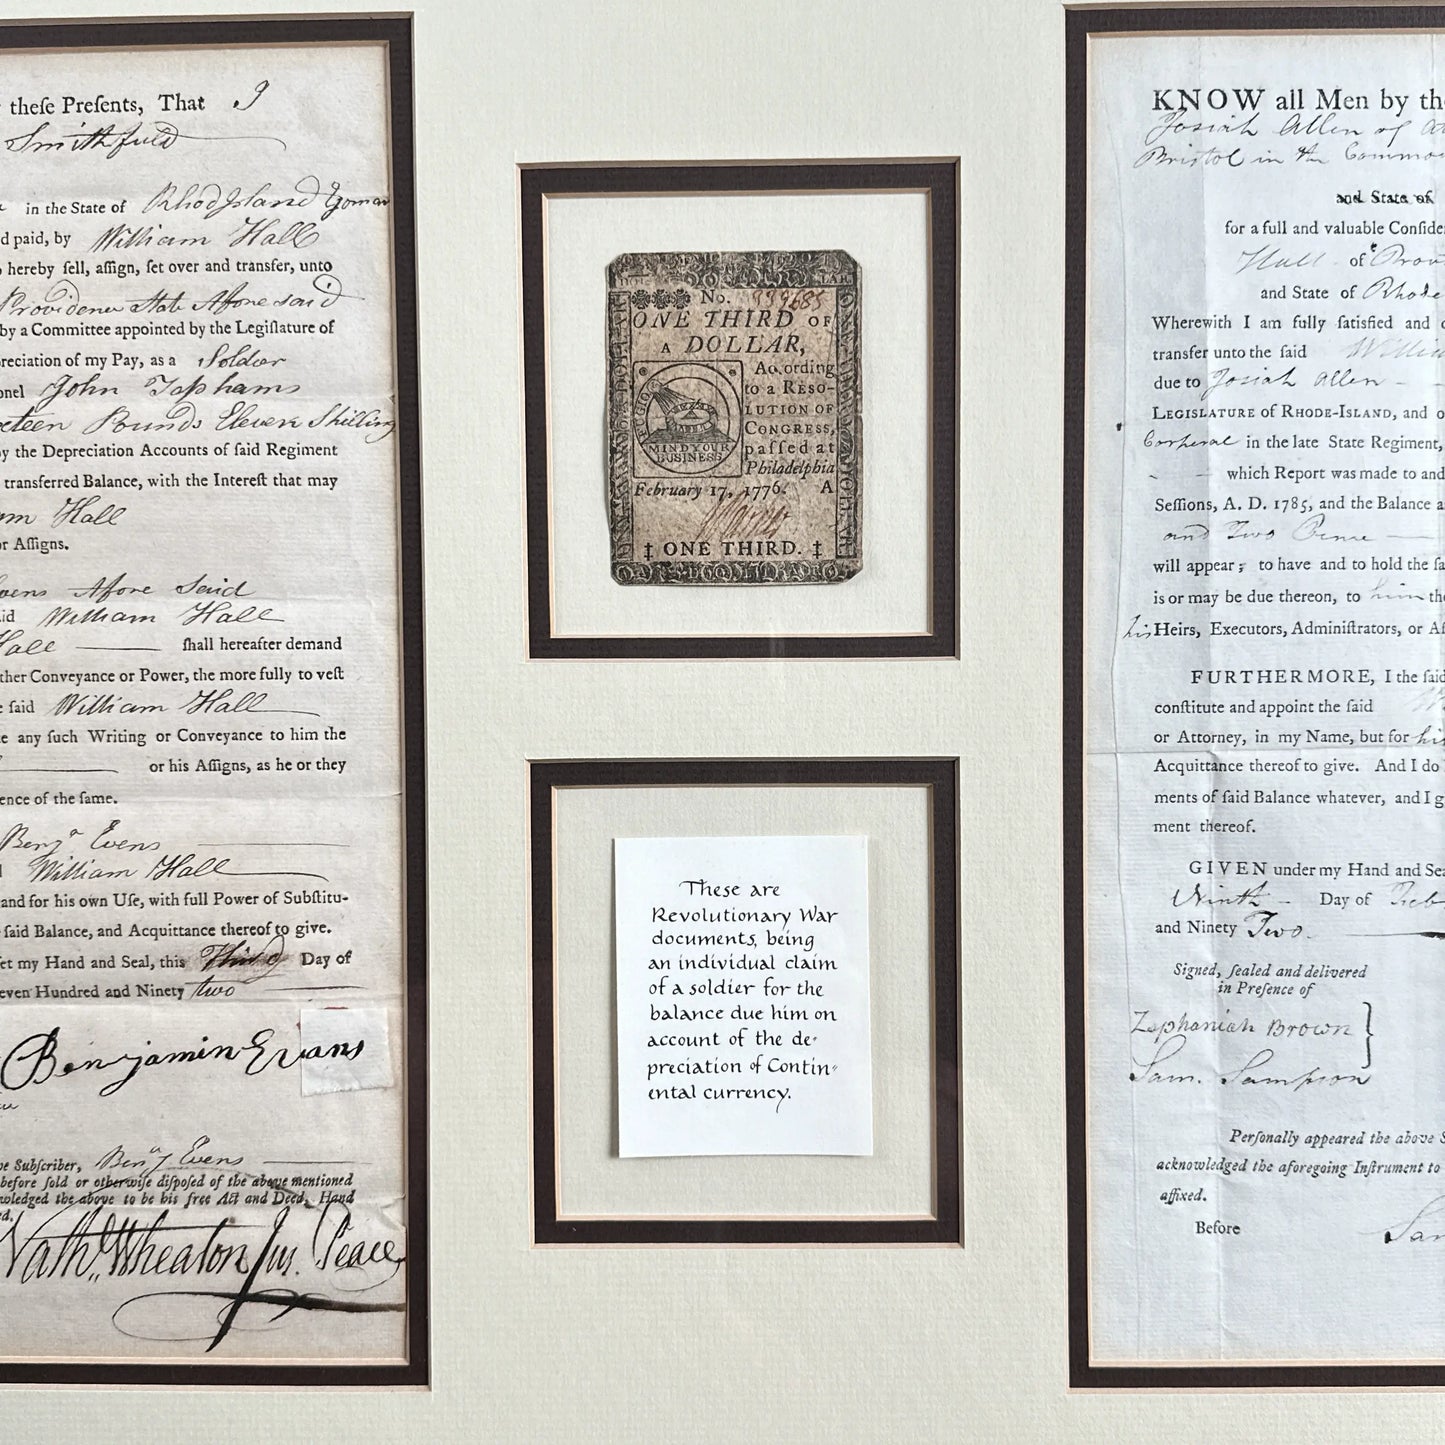 theſe Preſents, That I
Smithfield
in the State of Rhod Island Yoman
d paid, by William Hall
hereby ſell, aſſign, ſet over and transfer, unto
Providence State Afore said
by a Committee appointed by the Legiſlature of
reciation of my Pay, as a Soldier
onel John Tophams
xteen Pounds Eleven Shilling
y the Depreciation Accounts of ſaid Regiment
transferred Balance, with the Intereſt that may
am Hall
or Aſſigns.
vens Afore Said
id William Hall
Hall shall hereafter demand
ther Conveyance or Power, the more fully to veſt
e ſaid William Hall
e any ſuch Writing or Conveyance to him the
or his Aſſigns, as he or they
ence of the ſame.
Benja Evens
William Hall
and for his own Uſe, with full Power of Subſtitu-
ſaid Balance, and Acquittance thereof to give.
ſet my Hand and Seal, this Third Day of
even Hundred and Ninety two
Benjamin Evans
e Subſcriber, Benja Evens
before ſold or otherwiſe diſpoſed of the above mentioned
wledged the above to be his free Act and Deed, Hand
ed.
Nath. Wheaton Jus. Peace
DOLLAR
No. 939685
ONE THIRD OF
A DOLLAR,
According
to a RESO-
LUTION OF
CONGRESS,
paſſed at
Philadelphia
February 17, 1776. A
FUGIO
MIND YOUR
BUSINESS
‡ ONE THIRD. ‡
These are
Revolutionary War
documents, being
an individual claim
of a soldier for the
balance due him on
account of the de-
preciation of Contin-
ental currency.
KNOW all Men by the
Josiah Allen of
Bristol in the Commo
and State of
for a full and valuable Conſide
Hall of Prov
and State of Rhode
Wherewith I am fully ſatisfied and
transfer unto the ſaid William
due to Josiah Allen
LEGISLATURE of RHODE-ISLAND, and
Corperal in the late State Regiment,
which Report was made to and
Seſſions, A. D. 1785, and the Balance
and Two Pence
will appear; to have and to hold the ſa
is or may be due thereon, to him the
his Heirs, Executors, Adminiſtrators, or Aſ
FURTHERMORE, I the ſaid
conſtitute and appoint the ſaid
or Attorney, in my Name, but for his
Acquittance thereof to give. And I do
ments of ſaid Balance whatever, and I g
ment thereof.
GIVEN under my Hand and Sea
Ninth Day of Feb
and Ninety Two
Signed, ſealed and delivered
in Preſence of
Zephaniah Brown
Sam. Sampson
Perſonally appeared the above S
acknowledged the aforegoing Inſtrument to
affixed.
Before Sam